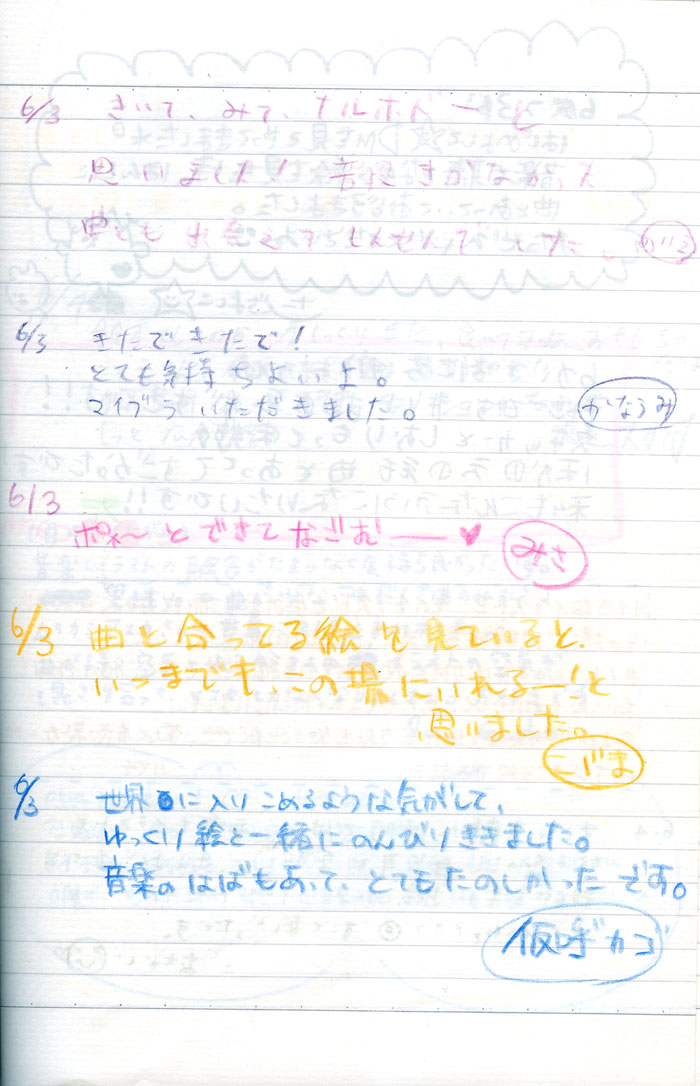 6/3 きいて、みて、ナルホドーと
思いました! 音楽
曲とも
6/3 きたできたで!
とても気持ちよいよ。
マイブラいただきました。
かなうみ
6/3
ポわ〜とできてなごむ――♥
みさ
6/3 曲と合ってる絵を見ていると、
いつまでも、この場にいれるー!と
思いました。
こじま
6/3 世界に入りこめるような気がして、
ゆっくり絵と一緒にのんびりききました。
音楽のはばもあって、とてもたのしかったです。
仮呼カゴ